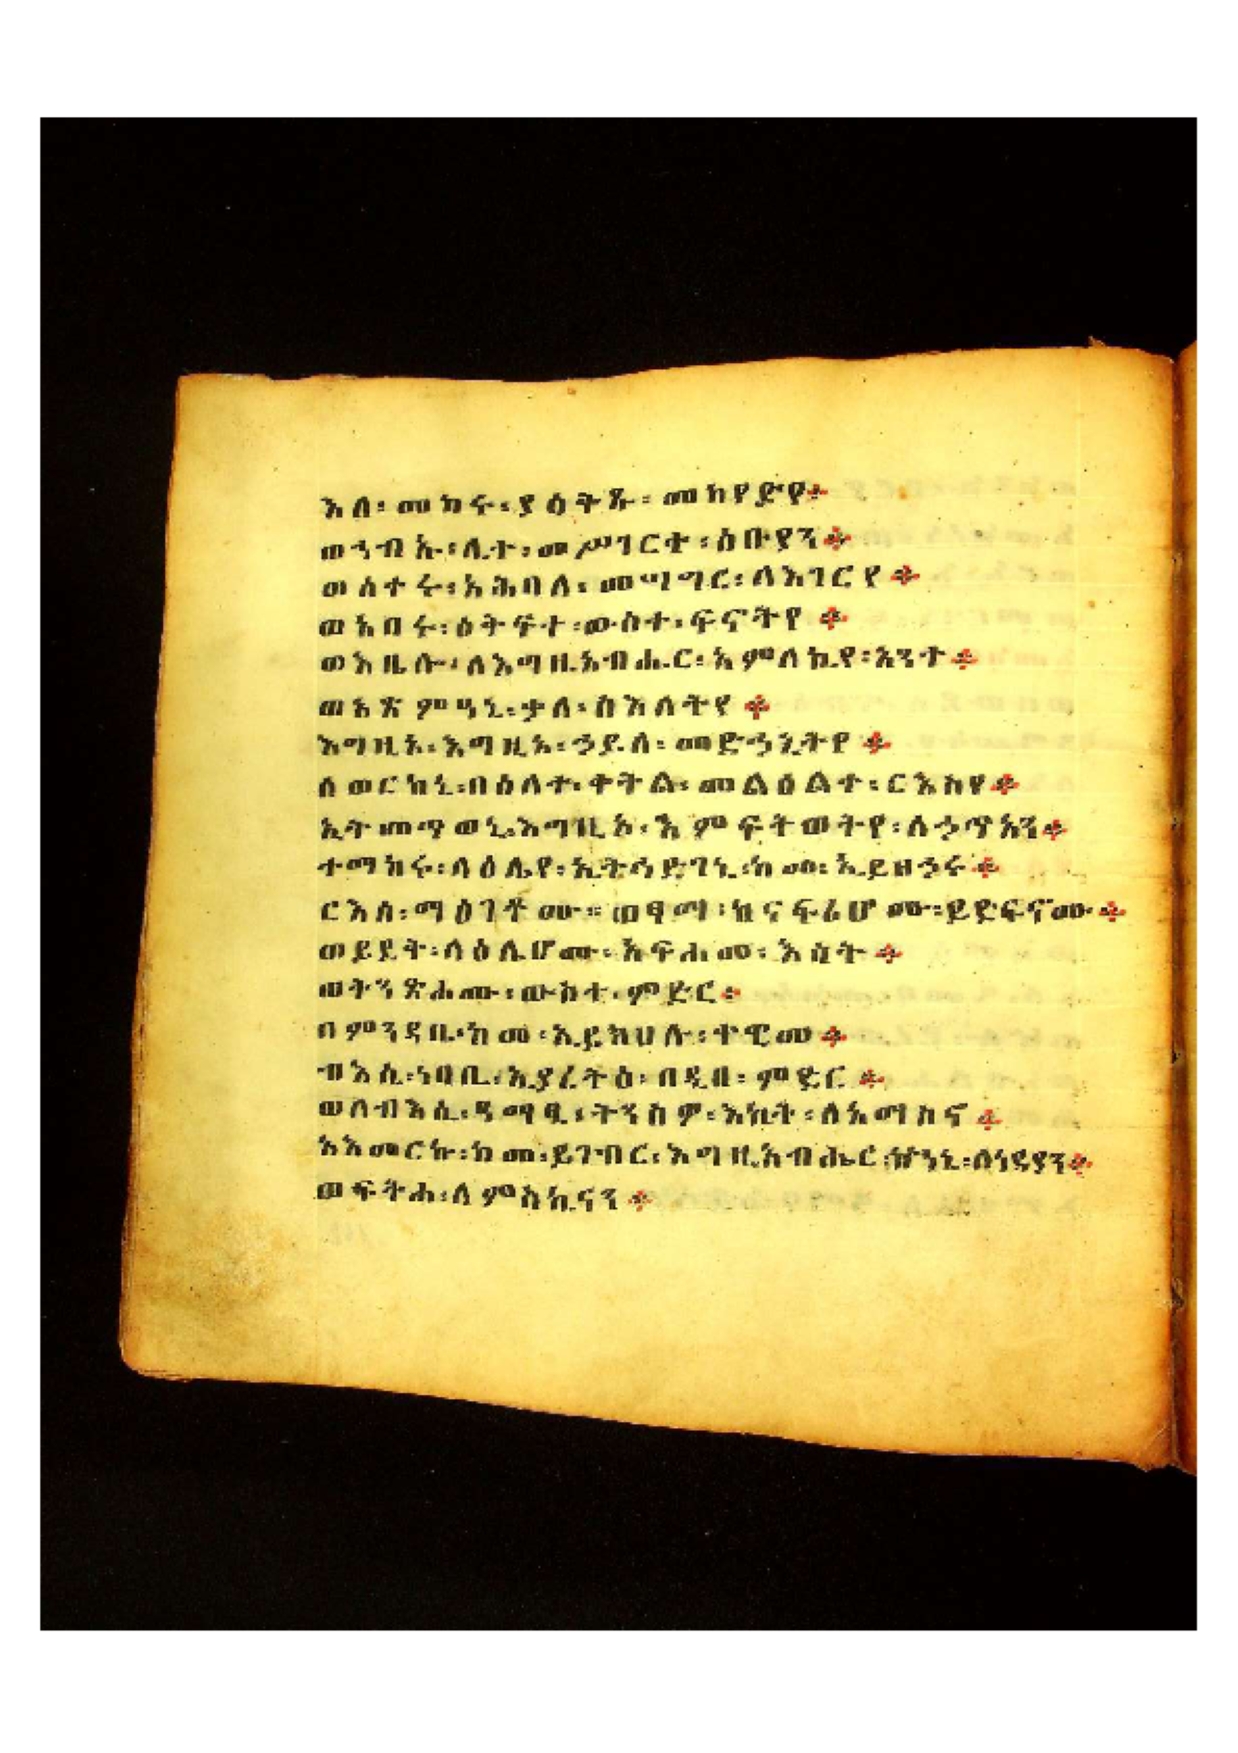 እለ፡ መከሩ፡ ያዕትጹ፡ መከየድየ።
ወኀብኡ፡ ሊተ፡ መሥገርተ፡ ዕቡያን።
ወሰተሩ፡ አሕባለ፡ መሣግር፡ ለእገርየ።
ወአበሩ፡ ዕትፍተ፡ ውስተ፡ ፍኖትየ።
ወእዜሉ፡ ለእግዚአብሔር፡ አምላኪየ፡ አንተ።
ወአጽምዓኒ፡ ቃለ፡ ስእለትየ።
እግዚኦ፡ እግዚኦ፡ ኃይለ፡ መድኃኒትየ።
ሰወርከኒ፡ በዕለተ፡ ቀትል፡ መልዕልተ፡ ርእስየ።
ኢትመጥወኒ፡ እግዚኦ፡ እምፍትወትየ፡ ለኃጥአን።
ተማከሩ፡ ላዕሌየ፡ ኢትኅድገኒ፡ ከመ፡ ኢይዘኃሩ።
ርእሰ፡ ማዕገቶሙ። ወፃማ፡ ከናፍሪሆሙ፡ ይድፍኖሙ።
ወይደት፡ ላዕሌሆሙ፡ አፍሐመ፡ እሳት።
ወትንጽሖሙ፡ ውስተ፡ ምድር።
በምንዳቤ፡ ከመ፡ ኢይክህሉ፡ ተዊመ።
ብእሲ፡ ነባቢ፡ ኢያረትዕ፡ በዲበ፡ ምድር።
ወለብእሲ፡ ዓማፂ፡ ትንስዎ፡ እኪት፡ ለአማስኖ።
አእመርኩ፡ ከመ፡ ይገብር፡ እግዚአብሔር፡ ኵነኔ፡ ለነዳያን።
ወፍትሐ፡ ለምስኪናን።